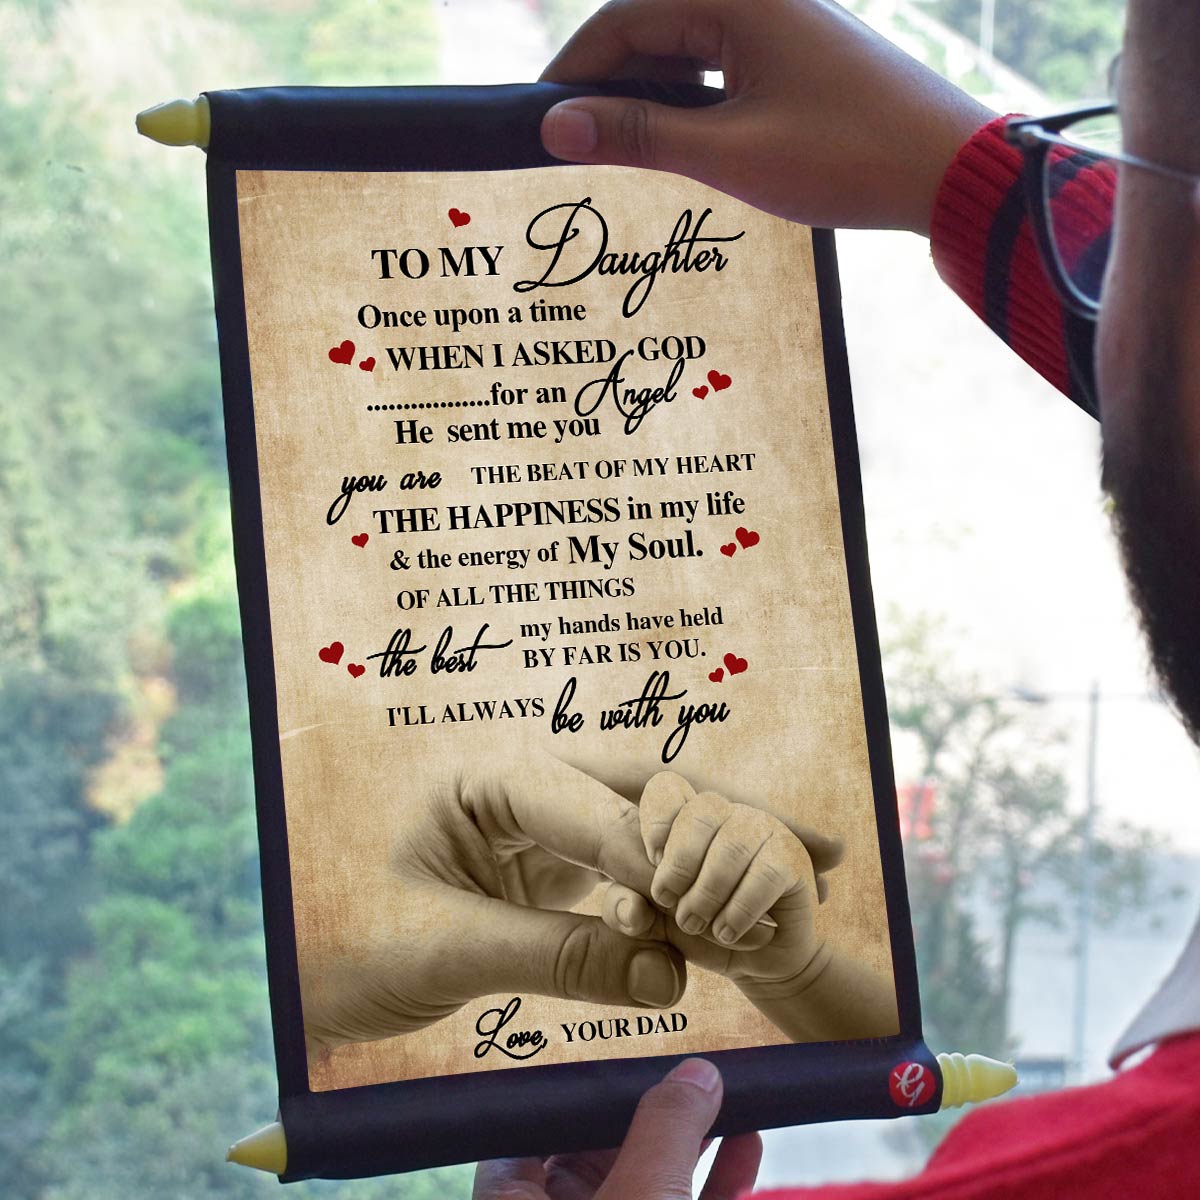 TO MY Daughter
Once upon a time
WHEN I ASKED GOD
.................for an Angel
He sent me you
you are THE BEAT OF MY HEART
THE HAPPINESS in my life
& the energy of My Soul.
OF ALL THE THINGS
the best my hands have held
BY FAR IS YOU.
I'LL ALWAYS be with you
Love, YOUR DAD